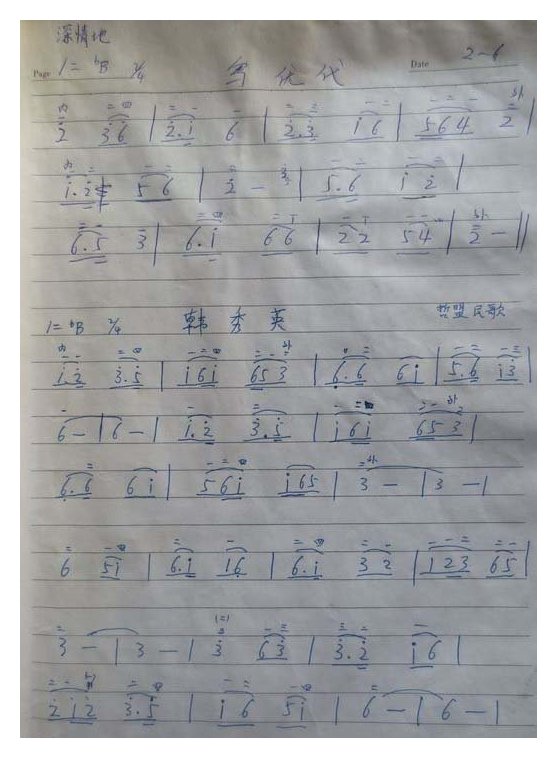 深情地
Page 1= ♭B 2/4 代 Date 2-6
2 36 | 2.i 6 | 2.3 i6 | 564 2 |
i.2 56 | 2 - | 5.6 i 2 |
6.5 3 | 6.i 66 | 22 54 | 2 - ||
1= ♭B 2/4 韩秀英 哲盟民歌
i.2 3.5 | i6i 653 | 6.6 6i | 5.6 i3 |
6 - | 6 - | i.2 3.5 | i6i 653 |
6.6 6i | 56i i65 | 3 - | 3 - |
6 5i | 6.i 16 | 6.i 32 | 123 65 |
3 - | 3 - | 3 63 | 3.2 i6 |
2i2 3.5 | i6 5i | 6 - | 6 - |